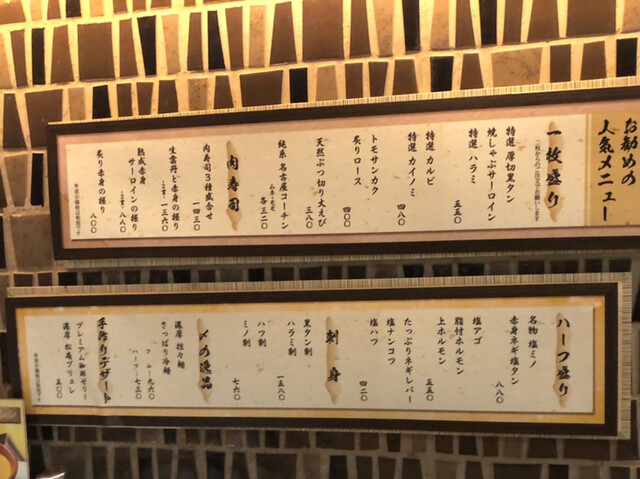 お勧めの
人気メニュー
一枚盛り
二枚からのご注文でお願いします
特選 厚切黒タン
焼しゃぶサーロイン
特選 ハラミ
五五〇
特選 カルビ
特選 カイノミ
四八〇
トモサンカク
炙りロース
四〇〇
天然ぶつ切り大えび
三八〇
純系 名古屋コーチン
各三二〇
肉寿司
肉寿司3種盛合せ
一四三〇
生雲丹と赤身の握り
一三六〇
熟成赤身
サーロインの握り
八八〇
炙り赤身の握り
八〇〇
ハーフ盛り
名物 塩ミノ
赤身ネギ塩タン
八八〇
塩アゴ
脂付ホルモン
上ホルモン
五五〇
たっぷりネギレバー
塩ナンコツ
塩ハツ
四二〇
刺身
黒タン刺
ハラミ刺
一五八〇
ハツ刺
ミノ刺
七六〇
〆の逸品
濃厚 担々麺
さっぱり冷麺
フル 九六〇
ハーフ 七三〇
手作りデザート
プレミアム珈琲ゼリー
濃厚 松庵ブリュレ
五〇〇